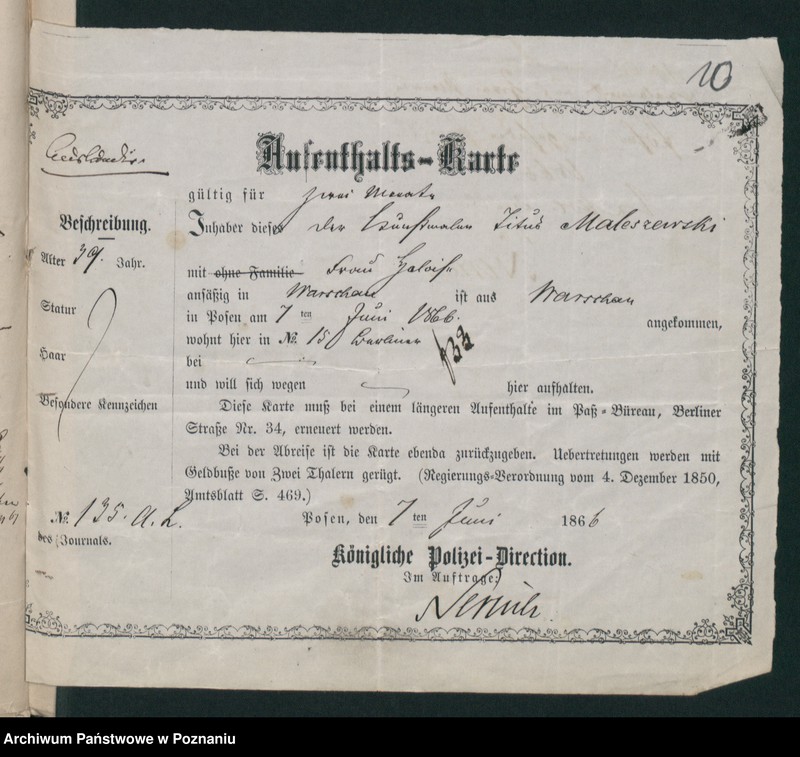 10
Ausländer
Aufenthalts-Karte
gültig für zwei Monate
Inhaber dieses der Kunstmaler Titus Maleszewski
mit ohne Familie Frau
ansäßig in Warschau ist aus Warschau
in Posen am 7 ten Juni 1866. angekommen,
wohnt hier in No. 15 Berliner
bei
und will sich wegen hier aufhalten.
Diese Karte muß bei einem längeren Aufenthalte im Paß-Büreau, Berliner
Straße Nr. 34, erneuert werden.
Bei der Abreise ist die Karte ebenda zurückzugeben. Uebertretungen werden mit
Geldbuße von Zwei Thalern gerügt. (Regierungs-Verordnung vom 4. Dezember 1850,
Amtsblatt S. 469.)
Posen, den 7 ten Juni 1866
Königliche Polizei-Direction.
Im Auftrage:
Beschreibung.
Alter 39. Jahr.
Statur
Haar
Besondere Kennzeichen
No. 135. A. L.
des Journals.
Archiwum Państwowe w Poznaniu